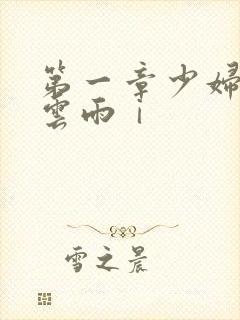 第一章少婦
雲雨｜
雪之晨